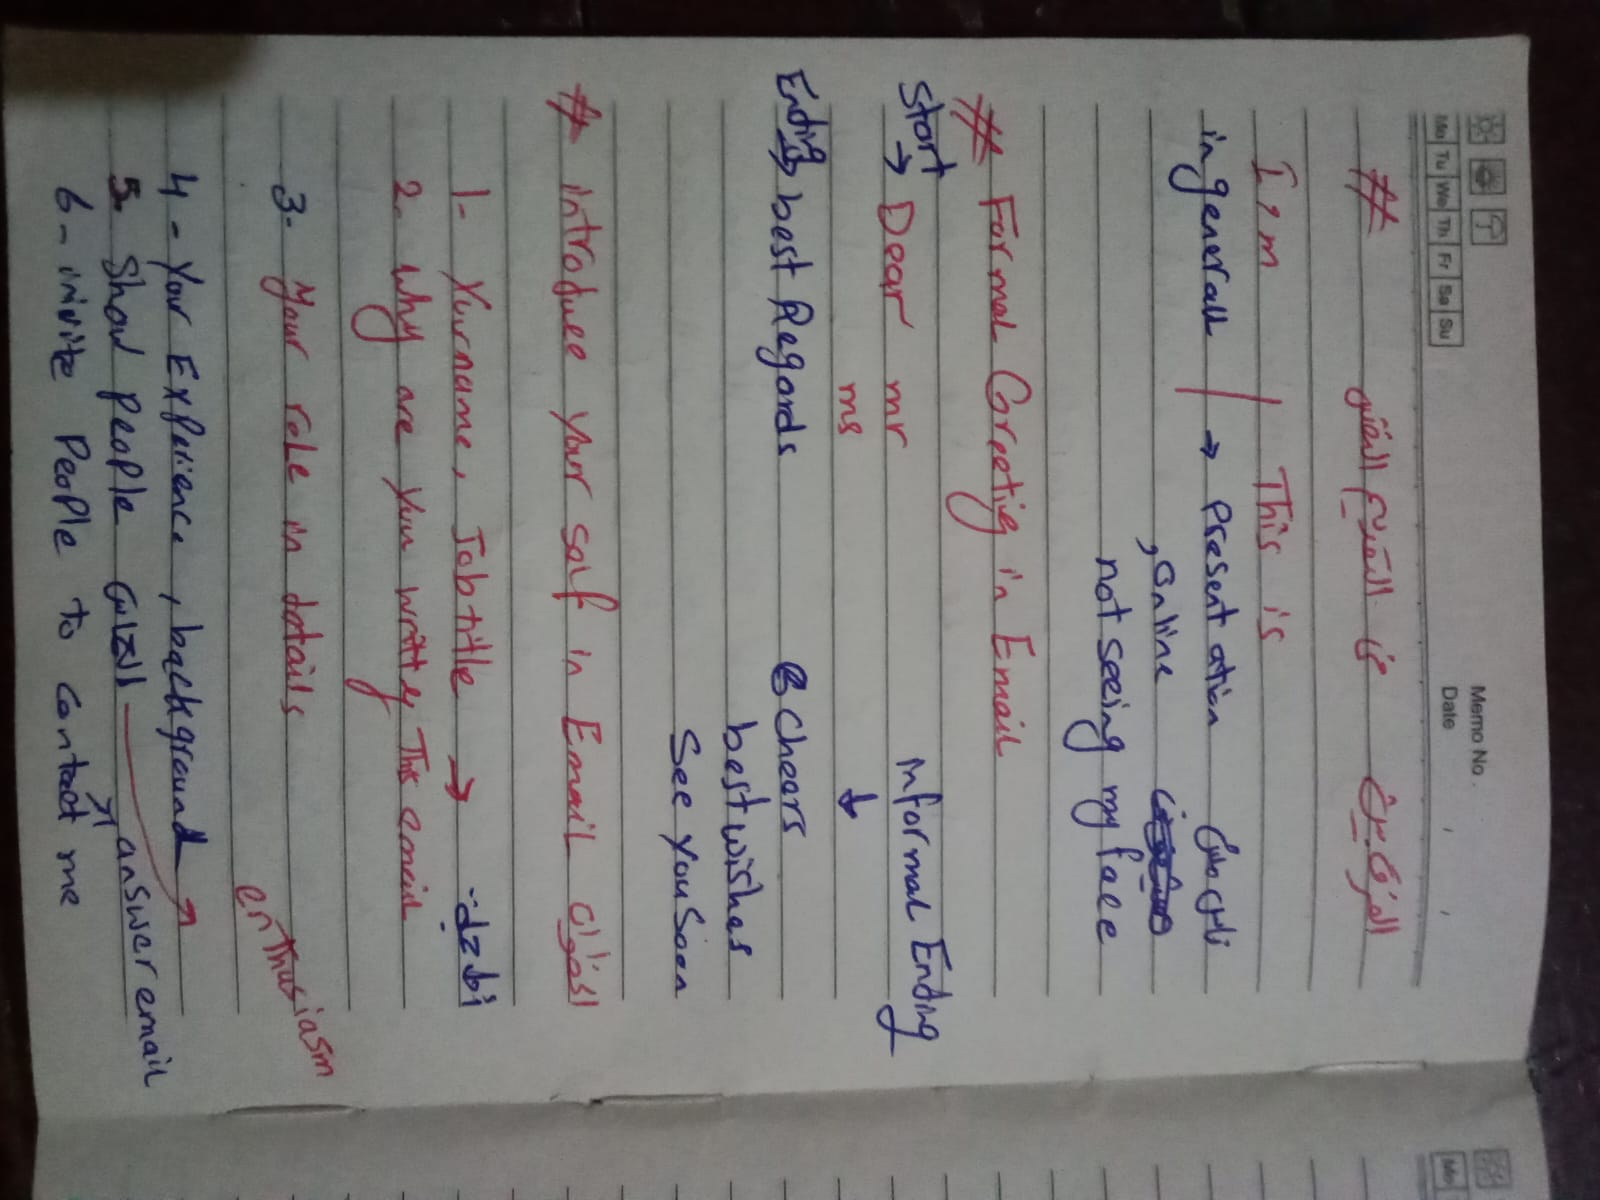 Memo No.
Mo Tu We Th Fr Sa Su
Date / /
# الفرق بين في التقديم النفس
I'm | This is
in generall → Presentation ناس مش
, online
not seeing my face
# Formal Greetig in Email
Start → Dear mr
ms
Informal Ending
↓
Ending → best Regards
Cheers
best wishes
See you Soon
# introduce your self in Email الخطوات
1- Yourname, Job title →
2- Why are you writty This email
3- Your role in details
enthusiasm
4- Your Experience, background
5- Show people الحماس
answer email
6- invite People to contact me